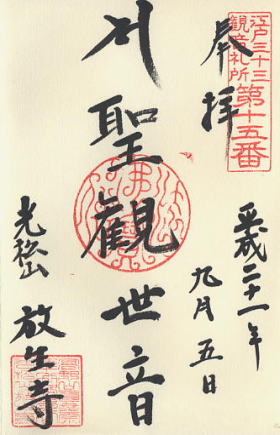 江戸三十三
観音札所
第十五番
奉拝
聖觀世音
平成二十一年
九月五日
光松山
放生寺